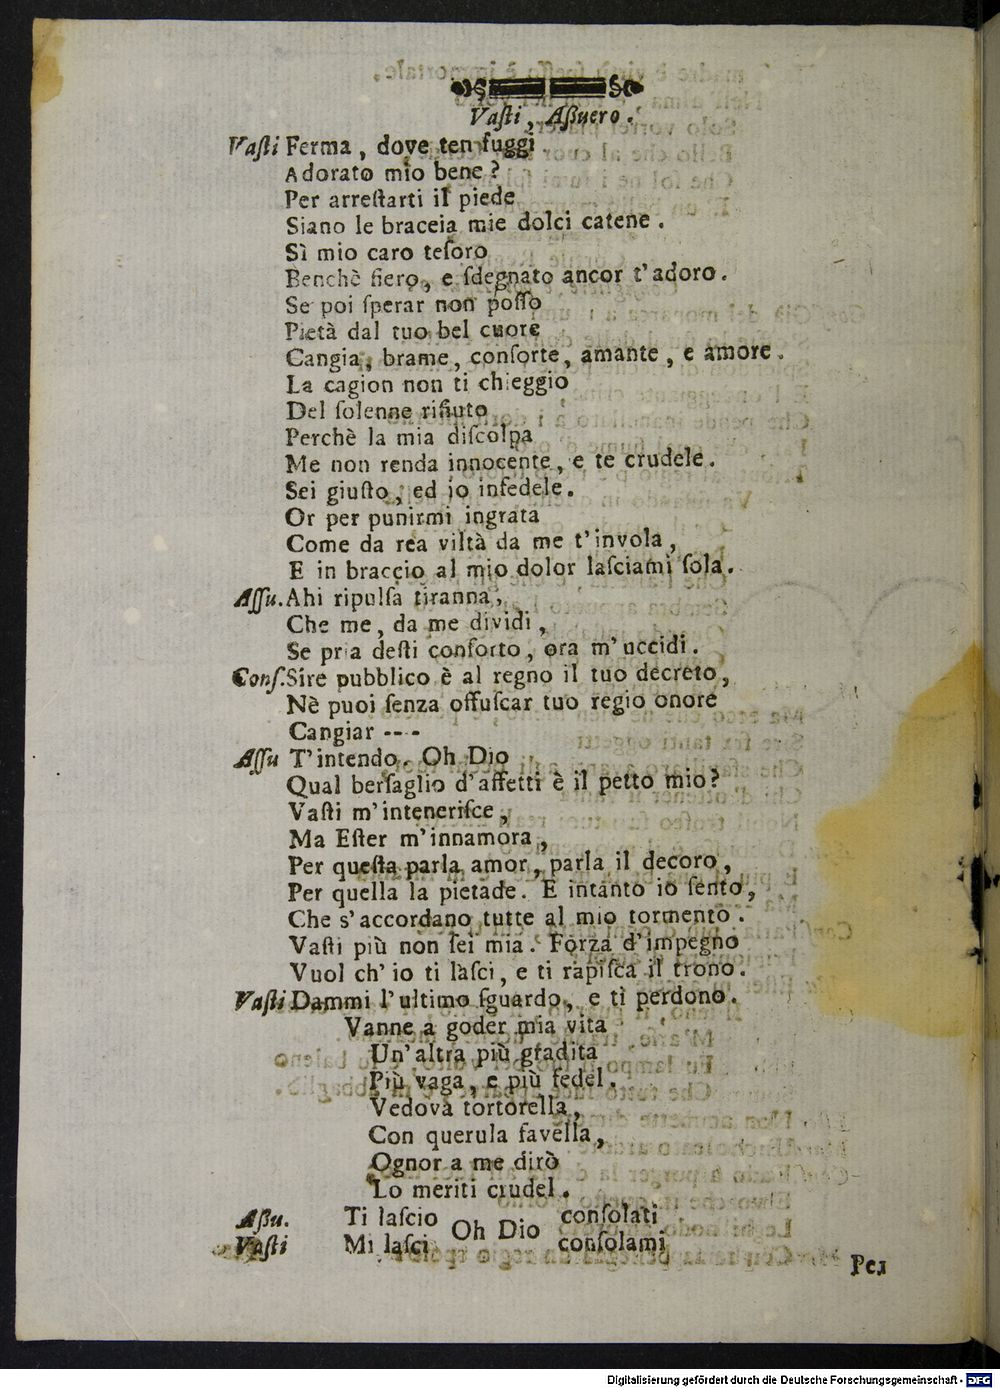 Vaſti, Aßuero.
Vaſti Ferma, dove ten fuggi
Adorato mio bene?
Per arreſtarti il piede
Siano le braceia mie dolci catene.
Sì mio caro teſoro
Benchè fiero, e ſdegnato ancor t'adoro.
Se poi ſperar non poſſo
Pietà dal tuo bel cuore
Cangia, brame, conſorte, amante, e amore.
La cagion non ti chieggio
Del ſolenne rifiuto
Perchè la mia diſcolpa
Me non renda innocente, e te crudele.
Sei giuſto, ed io infedele.
Or per punirmi ingrata
Come da rea viltà da me t'invola,
E in braccio al mio dolor laſciami ſola.
Aſſu. Ahi ripulſa tiranna,
Che me, da me dividi,
Se pria deſti conforto, ora m'uccidi.
Conſ. Sire pubblico è al regno il tuo decreto,
Nè puoi ſenza offuſcar tuo regio onore
Cangiar ---
Aſſu T'intendo. Oh Dio
Qual berſaglio d'affetti è il petto mio?
Vaſti m'inteneriſce,
Ma Eſter m'innamora,
Per queſta parla amor, parla il decoro,
Per quella la pietade. E intanto io ſento,
Che s'accordano tutte al mio tormento.
Vaſti più non ſei mia. Forza d'impegno
Vuol ch'io ti laſci, e ti rapiſca il trono.
Vaſti Dammi l'ultimo ſguardo, e ti perdono.
Vanne a goder mia vita
Un'altra più gradita
Più vaga, e più fedel.
Vedova tortorella,
Con querula favella,
Ognor a me dirò
Lo meriti crudel.
Aßu. Ti laſcio Oh Dio conſolati
Vaſti Mi laſci conſolami
Per
Digitalisierung gefördert durch die Deutsche Forschungsgemeinschaft - DFG